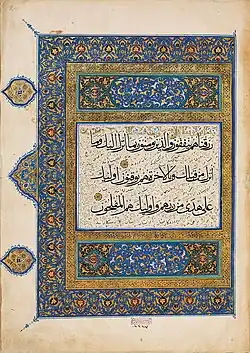 رزقناهم ينفقون والذين يؤمنون بما أنزل إليك وما
أنزل من قبلك وبالآخرة هم يوقنون أولئك
على هدى من ربهم وأولئك هم المفلحون